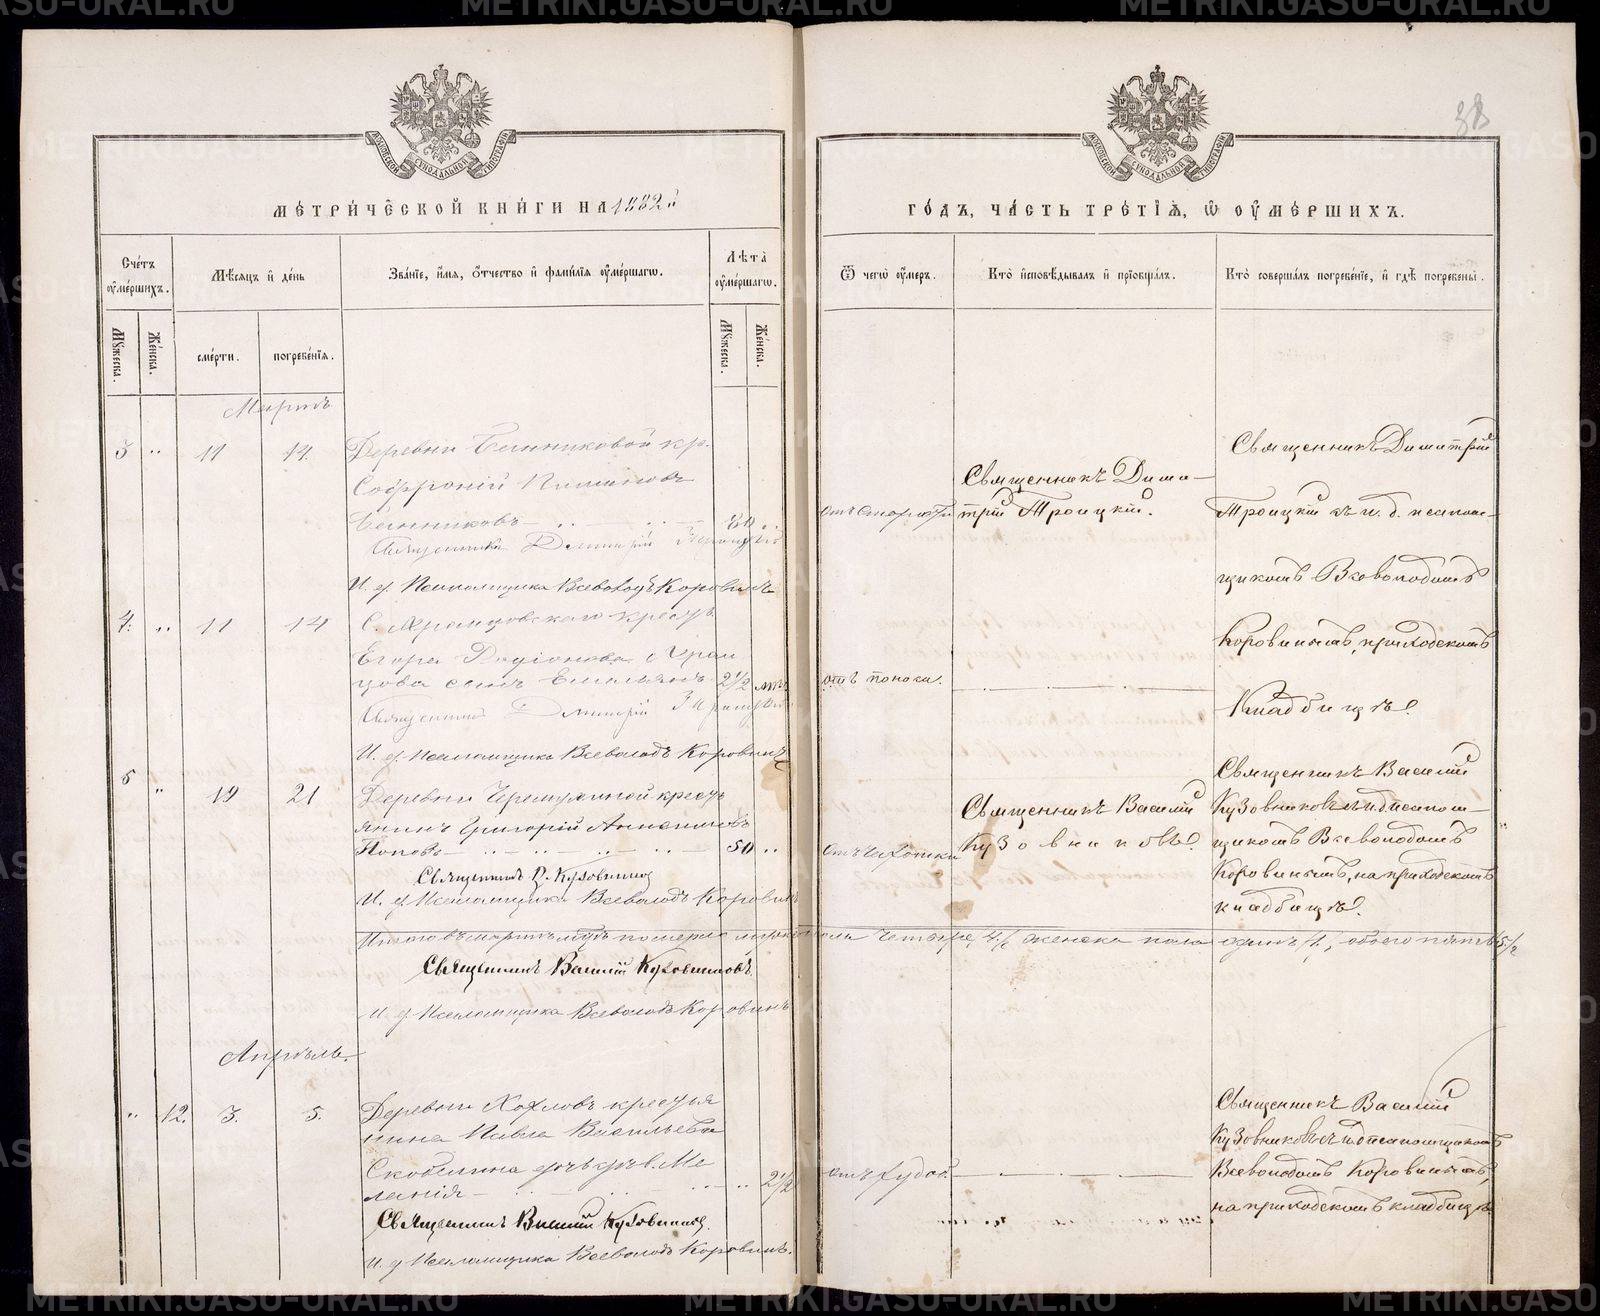 METRIKI.GASU-URAL.RU
38
МОСКОВСКОЙ СѴНОДАЛЬНОЙ ТИПОГРАФІИ
МОСКОВСКОЙ СѴНОДАЛЬНОЙ ТИПОГРАФІИ
МЕТРИЧЕСКОЙ КНИГИ НА 1882й
ГОДЪ, ЧАСТЬ ТРЕТІЯ, Ѡ ОУМЕРШИХЪ.
Счетъ оумершихъ.
Мѣсяцъ и день
Званіе, имя, отчество и фамилія оумершагѡ.
Лѣта оумершагѡ.
Ѿ чегѡ оумеръ.
Кто исповѣдывалъ и пріобщалъ.
Кто совершалъ погребеніе, и гдѣ погребены.
Мужеска.
Женска.
смерти.
погребенія.
Мужеска.
Женска.
Мартъ
3 " 11 14.
Деревни кр.
Софроній
80 "
Священникъ Димитрій Троицкій
И. д. Псаломщика Всеволодъ Коровинъ
отъ старости
Священникъ Дими-
трій Троицкій.
Священникъ Димитрій
Троицкій съ и. д. псалом-
щикомъ Всеволодомъ
Коровинымъ, приходскомъ
Кладбищѣ.
4. " 11 14
С. крестъ.
Егора Родіонова
сынъ Емельянъ 2½
Священникъ Димитрій Троицкій
И. д. Псаломщика Всеволодъ Коровинъ
отъ поноса.
5 " 19 21
Деревни кресть
янинъ Григорій
Поповъ 50 "
Священникъ В. Кузовниковъ
И. д. Псаломщика Всеволодъ Коровинъ
отъ чахотки
Священникъ Василій
Кузовниковъ.
Священникъ Василій
Кузовниковъ съ и. д. псалом-
щикомъ Всеволодомъ
Коровинымъ, на приходскомъ
кладбищѣ.
Итого въ мартѣ м-цѣ померло мужеска пола четыре, /4/ женска пола одинъ /1/, обоего пять /5/
Священникъ Василій Кузовниковъ
И. д. Псаломщика Всеволодъ Коровинъ
Апрѣль.
" 12. 3. 5.
Деревни Хохловъ крестья
нина Павла Васильева
Скобелина дочь дѣв. Ме
ланія 2½
Священникъ Василій Кузовниковъ.
И. д. Псаломщика Всеволодъ Коровинъ.
отъ худоб.
Священникъ Василій
Кузовниковъ съ и. д. псаломщикомъ
Всеволодомъ Коровинымъ,
на приходскомъ кладбищѣ